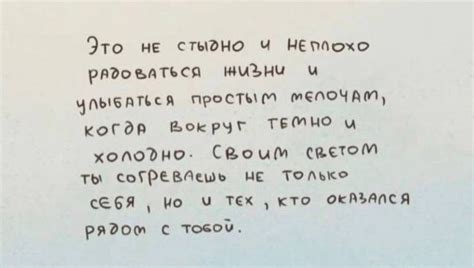 Это не стыдно и неплохо
радоваться жизни и
улыбаться простым мелочам,
когда вокруг темно и
холодно. Своим светом
ты согреваешь не только
себя, но и тех, кто оказался
рядом с тобой.